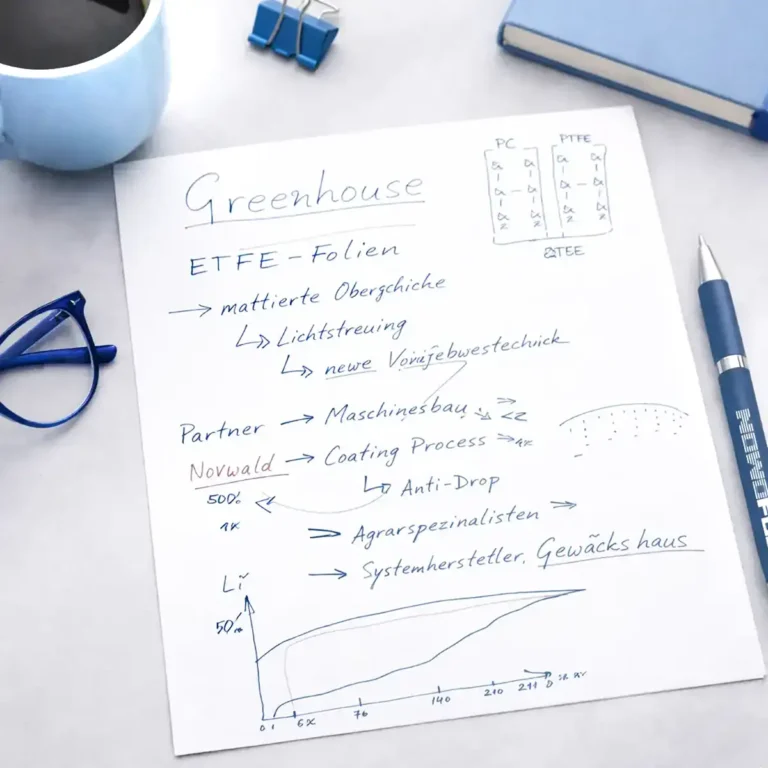 Greenhouse
PC PTFE
ETFE – Folien
→ mattierte Oberschiche
↳ Lichtstreuing
↳ newe
Partner → Maschinesbau
Norwald → Coating Process
↳ Anti-Drop
500%
1x
Agrarspezinalisten
→ Systemhersteller, Gewäckshaus
Li
50%
0 1 6x 76 140 210 211